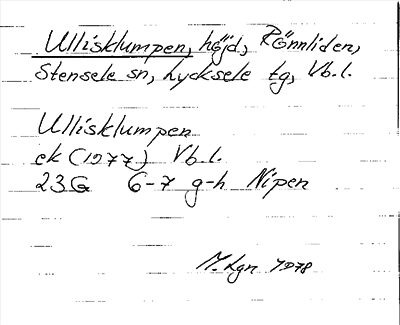 Ullisklumpen, höjd, Rönnliden,
Stensele sn, Lycksele tg, Vb.l.
Ullisklumpen
ek (1977) Vb.l.
23G 6-7 g-h Nipen
1978